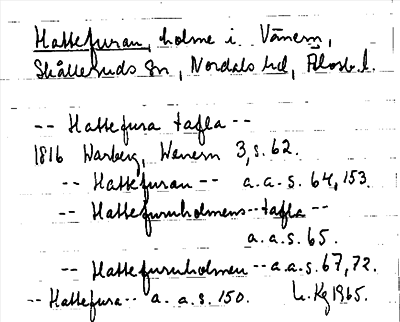 Hattefuran, holme i Vänern,
Skålleruds sn, Nordals hd, Älvsb. l.
-- Hattefura tafla --
1816 Warberg, Wenern 3, s. 62.
-- Hattefuran -- a.a.s. 64, 153.
-- Hattefuruholmens tafla --
a.a.s. 65.
-- Hattefuruholmen -- a.a.s. 67, 72.
-- Hattefura -- a. a.s. 150. 1965.